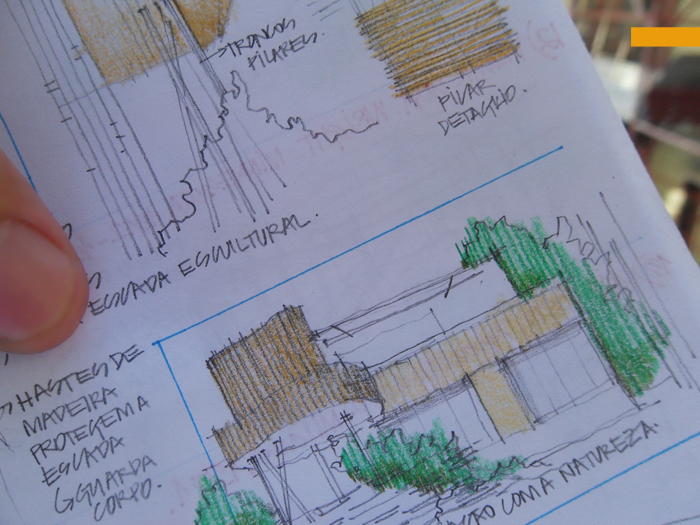 TRONCOS
PILARES.
PILAR
DETALHE.
ESCADA ESCULTURAL.
HASTES DE
MADEIRA
PROTEGEM A
ESCADA
GUARDA
CORPO.
COM A NATUREZA.